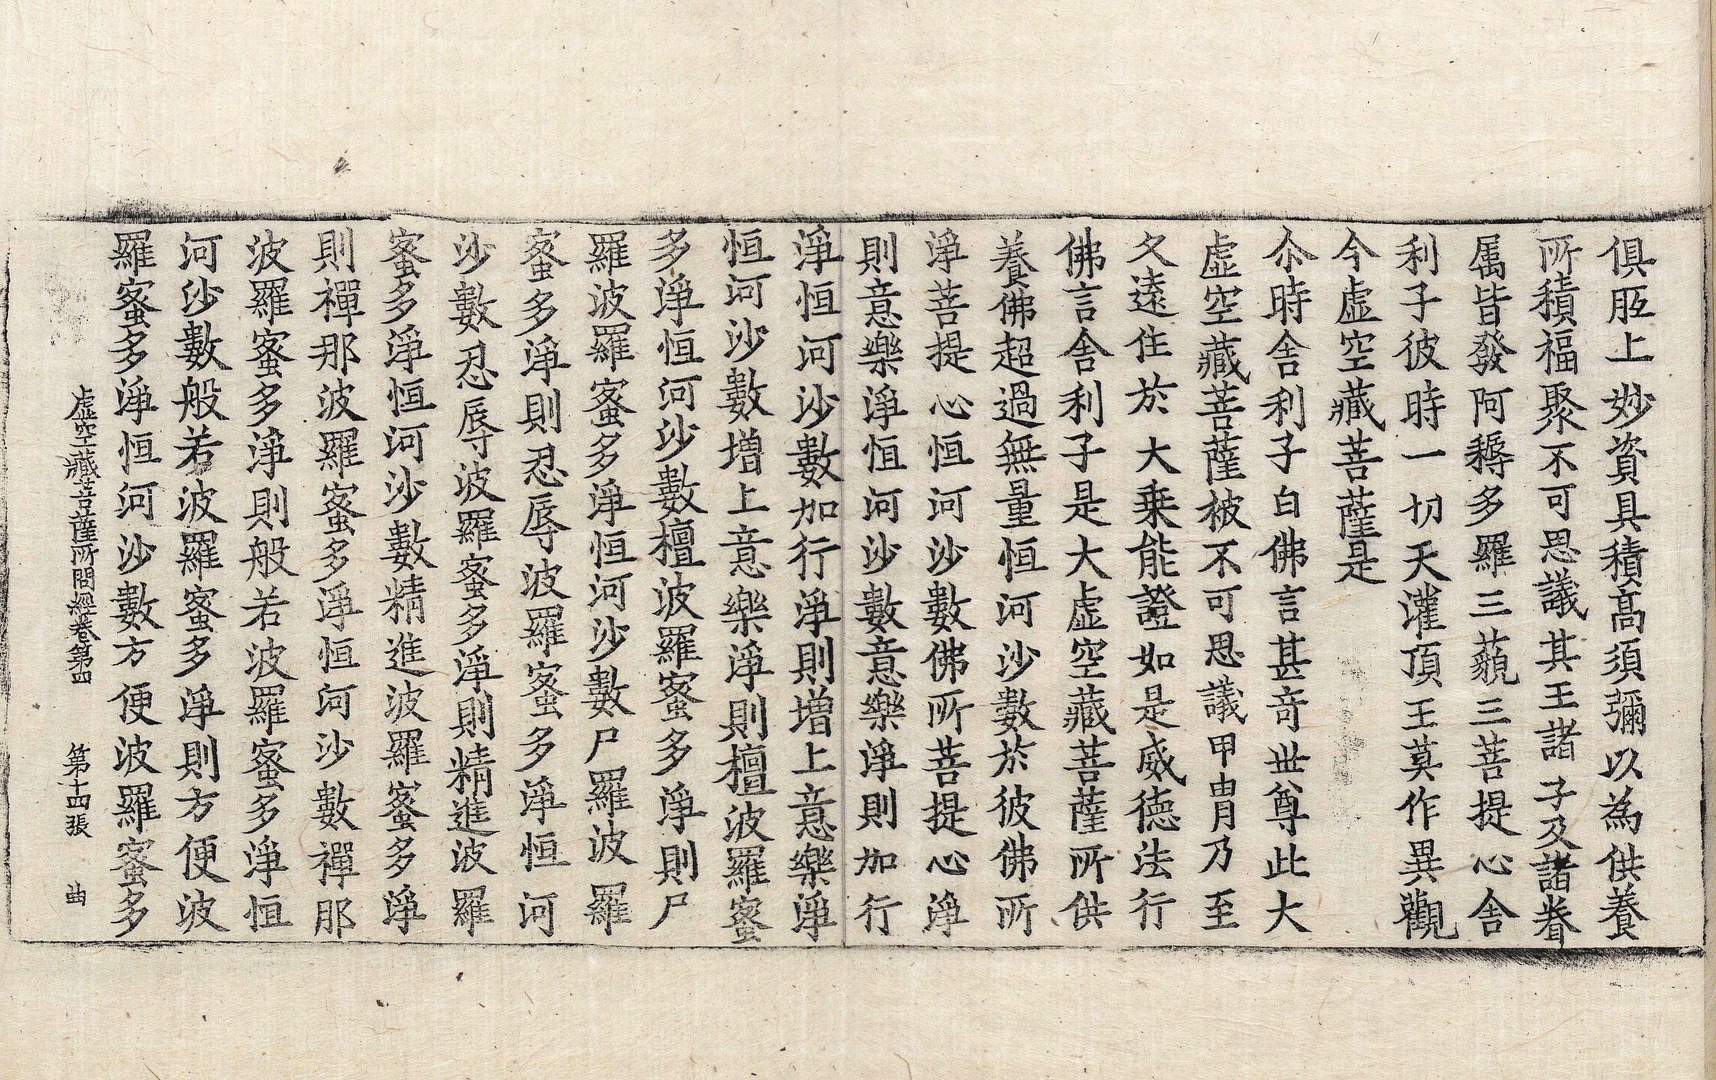 俱胝上妙資具積髙須彌以為供養
所積福聚不可思議其王諸子及諸眷
属皆發阿耨多羅三藐三菩提心舍
利子彼時一切天灌頂王莫作異觀
今虛空藏菩薩是
尒時舍利子白佛言甚奇世尊此大
虛空藏菩薩被不可思議甲胄乃至
久遠住於大乘能證如是威德法行
佛言舍利子是大虛空藏菩薩所供
養佛超過無量恒河沙數於彼佛所
淨菩提心恒河沙數佛所菩提心淨
則意樂淨恒河沙數意樂淨則加行
淨恒河沙數加行淨則增上意樂淨
恒河沙數增上意樂淨則檀波羅蜜
多淨恒河沙數檀波羅蜜多淨則尸
羅波羅蜜多淨恒河沙數尸羅波羅
蜜多淨則忍辱波羅蜜多淨恒河
沙數忍辱波羅蜜多淨則精進波羅
蜜多淨恒河沙數精進波羅蜜多淨
則禪那波羅蜜多淨恒河沙數禪那
波羅蜜多淨則般若波羅蜜多淨恒
河沙數般若波羅蜜多淨則方便波
羅蜜多淨恒河沙數方便波羅蜜多
虛空藏菩薩所問經卷第四 第十四張 曲